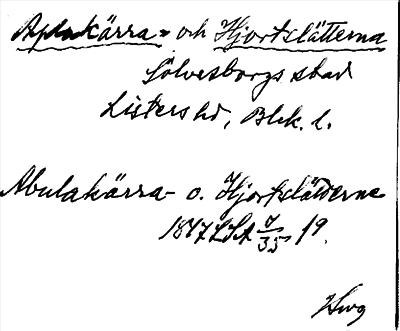 Aplakärra- och Hjortslätterna
Sölvesborgs stad
Listers hd, Blek. l.
Abulakärra- o. Hjortslätterne
1847 LSA 7/35 19.